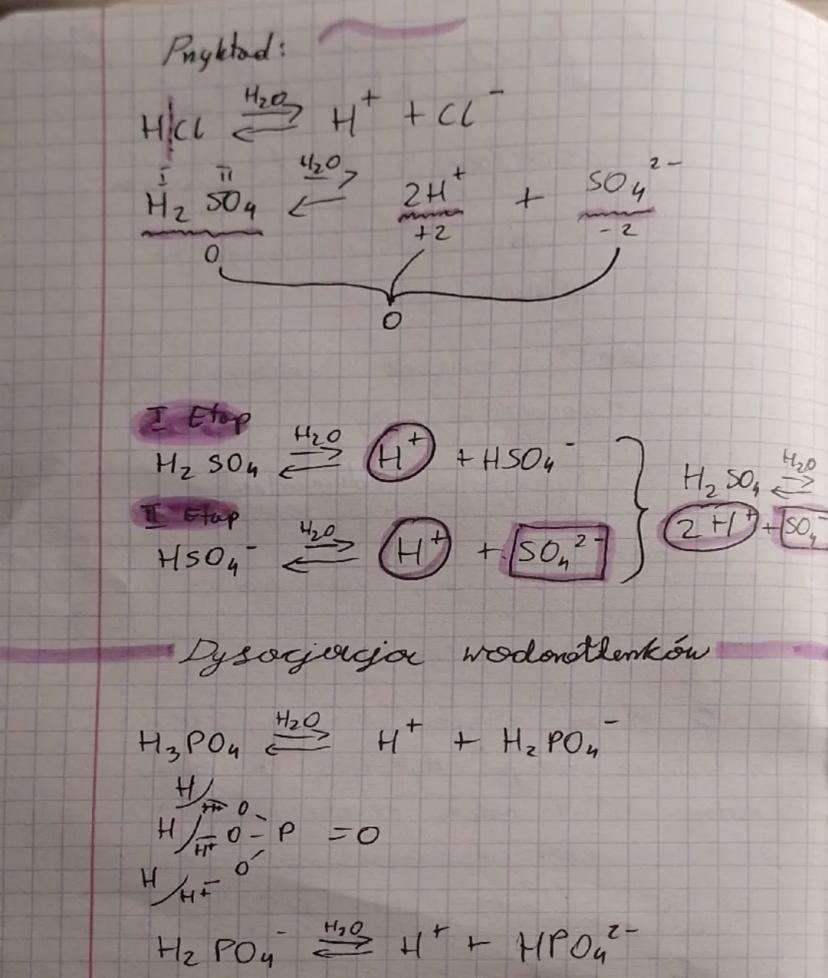 Przykład:
H|Cl ⇌ H₂O H⁺ + Cl⁻
I II
H₂SO₄ ⇌ H₂O 2H⁺ + SO₄²⁻
0 +2 -2
0
I Etap
H₂SO₄ ⇌ H₂O H⁺ + HSO₄⁻
II Etap
HSO₄⁻ ⇌ H₂O H⁺ + SO₄²⁻
H₂SO₄ ⇌ H₂O
2H⁺ + SO₄⁻
Dysocjacja wodorotlenków
H₃PO₄ ⇌ H₂O H⁺ + H₂PO₄⁻
H/ H⁺ O
H/ H⁺ O - P = O
H/ H⁺ O
H₂PO₄⁻ ⇌ H₂O H⁺ + HPO₄²⁻